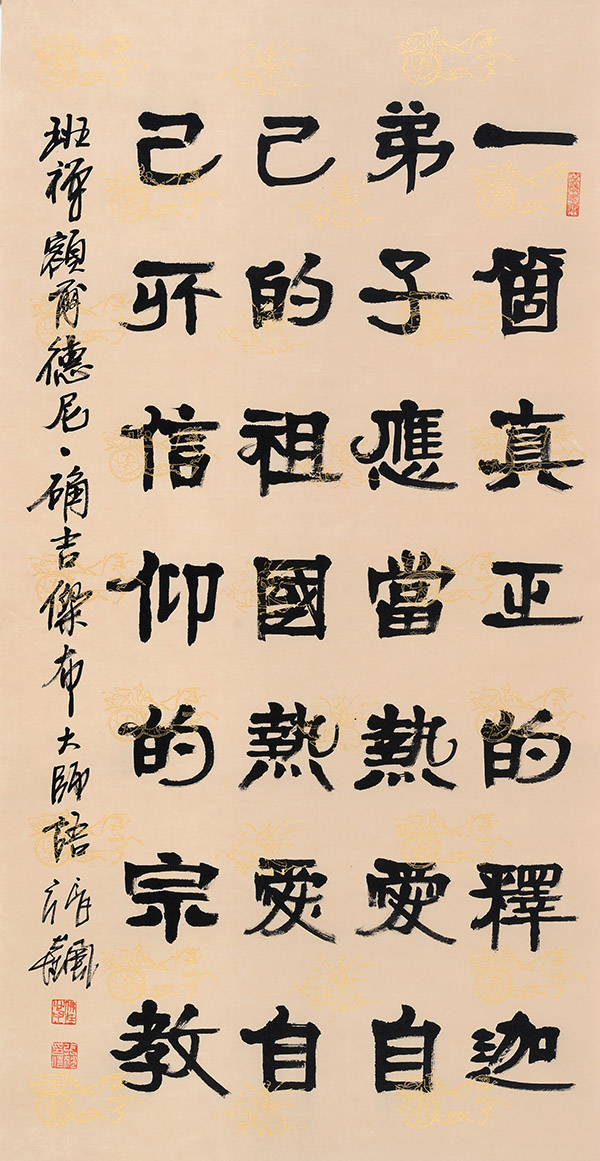 一箇真正的釋迦
弟子應當熱愛自
己的祖國熱愛自
己所信仰的宗教
班禪額爾德尼·确吉傑布大師語